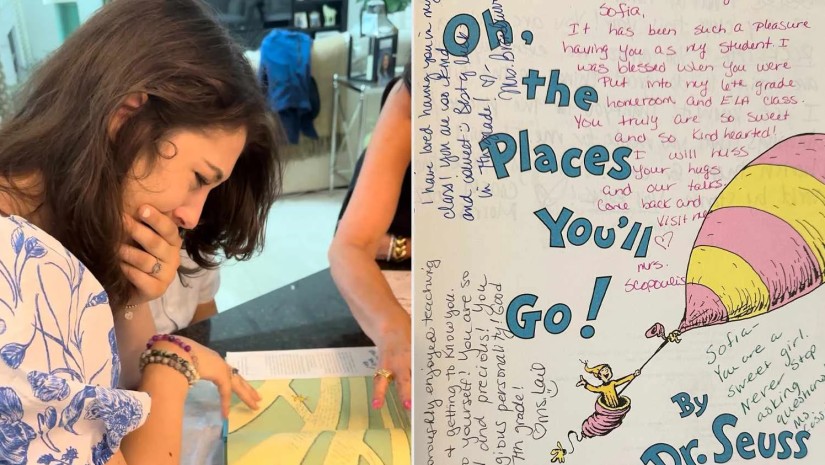 Oh,
the
Places
You'll
Go!
By
Dr. Seuss
Sofia,
It has been such a pleasure
having you as my student. I
was blessed when you were
put into my 6th grade
homeroom and ELA class.
You truly are so sweet
and so kind hearted!
I will miss
your hugs
and our talks.
Come back and
visit me
♡
mrs.
Scopoulis
I have loved having you in my
class! You are so kind
and sweet :) Best of luck
in 7th grade! ♡
Mrs.
enjoyed teaching
+ getting to know you.
yourself! You are so
and precious! You
personality! Good
7th grade!
♡ms.
Sofia-
You are a
sweet girl.
Never stop
asking
questions!
Ms.